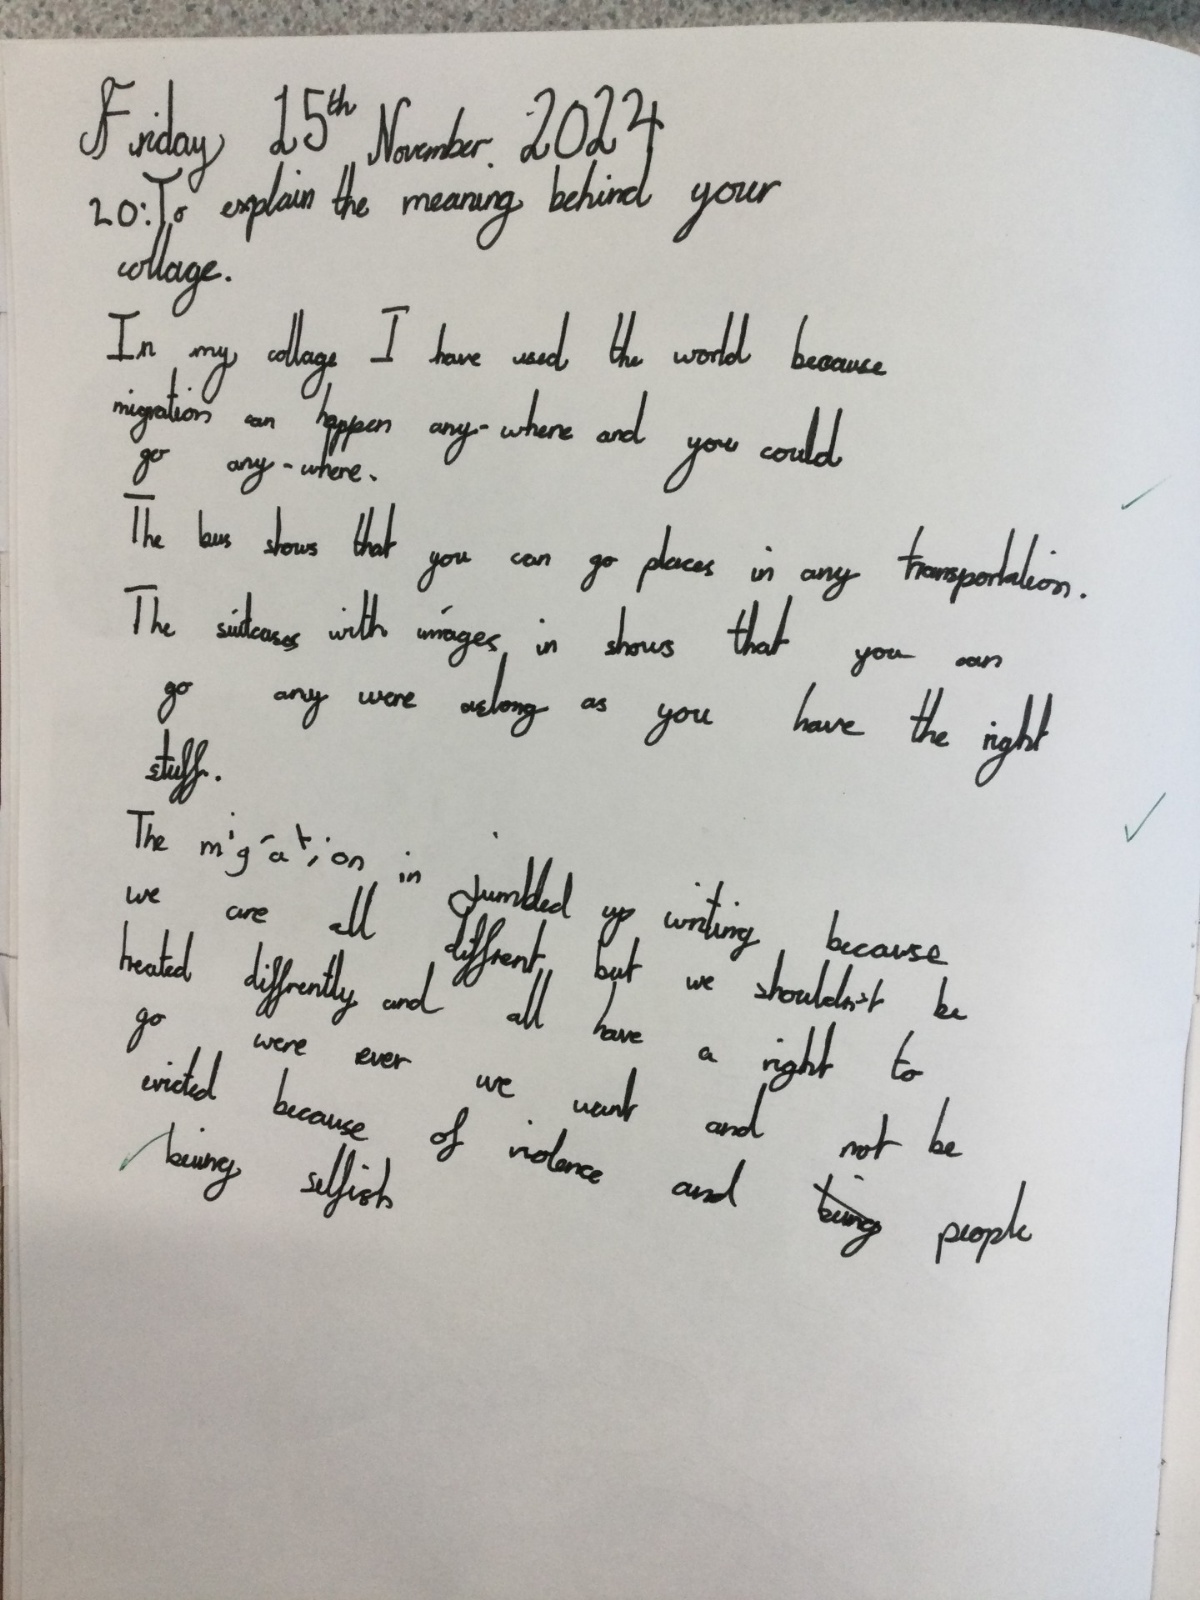 Friday 15th November 2024
LO: To explain the meaning behind your
collage.
In my collage I have used the world because
migration can happen any-where and you could
go any-where.
The bus shows that you can go places in any transportation.
The suitcases with images in shows that you can
go any were aslong as you have the right
stuff.
The migration in jumbled up writing because
we are all diffrent but we shouldn't be
treated diffrently and all have a right to
go were ever we want and not be
evicted because of violence and being people
being selfish